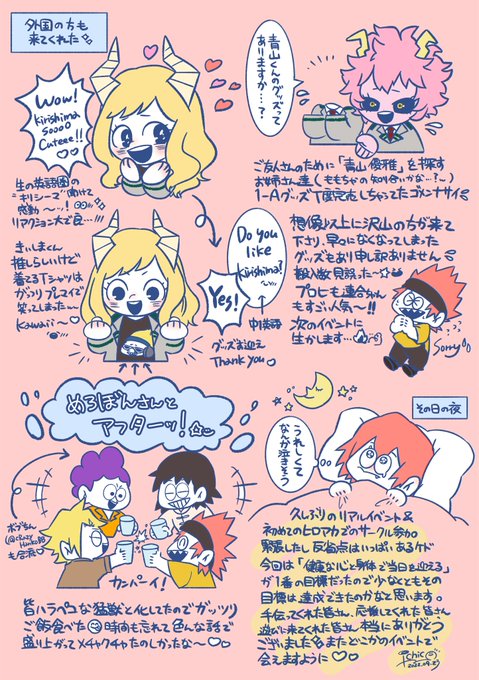 外国の方も
来てくれた
Wow!
Kirishima
soooo
Cuteee!!
生の英語圏の
"キリシーマ"聞けて
感動〜ッ!
リアクション大で良…!!!
青山くんのグッズって
ありますか…?
ご友人さんのために「青山優雅」を探す
お姉さん達(ももちゃんの知り合いかな…?〜)
1-Aグッズ丁度完売しちゃってたゴメンナサイ
きりしまくん
推しらしいけど
着てるTシャツは
がっつりプレマイで
笑ってしまった〜
Kawaii〜
Do you
like
Kirishima?
Yes!
グッズお迎え
Thank you
想像以上に沢山の方が来て
下さり、早々になくなってしまった
グッズもあり申し訳ありません
搬入数見誤った〜
プロヒも連合ちゃん
もすごい人気〜!!
次のイベントに
生かします…
Sorry
めろぽんさんと
アフターッ!
カンパーイ!
も合流
皆ハラペコな猛獣と化してたのでガッツリ
ご飯食べた 時間も忘れて色んな話で
盛り上がってメチャクチャたのしかったな〜
その日の夜
うれしくて
なんか泣きそう
久しぶりのリアルイベント&
初めてのヒロアカでのサークル参加
緊張したし反省点はいっぱいあるケド
今回は「健康な心と身体で当日を迎える」
が1番の目標だったので少なくともその
目標は達成できたのかなと思います。
手伝ってくれた皆さん、応援してくれた皆さん
遊びに来てくれた皆さん本当にありがとう
ございました またどこかのイベントで
会えますように